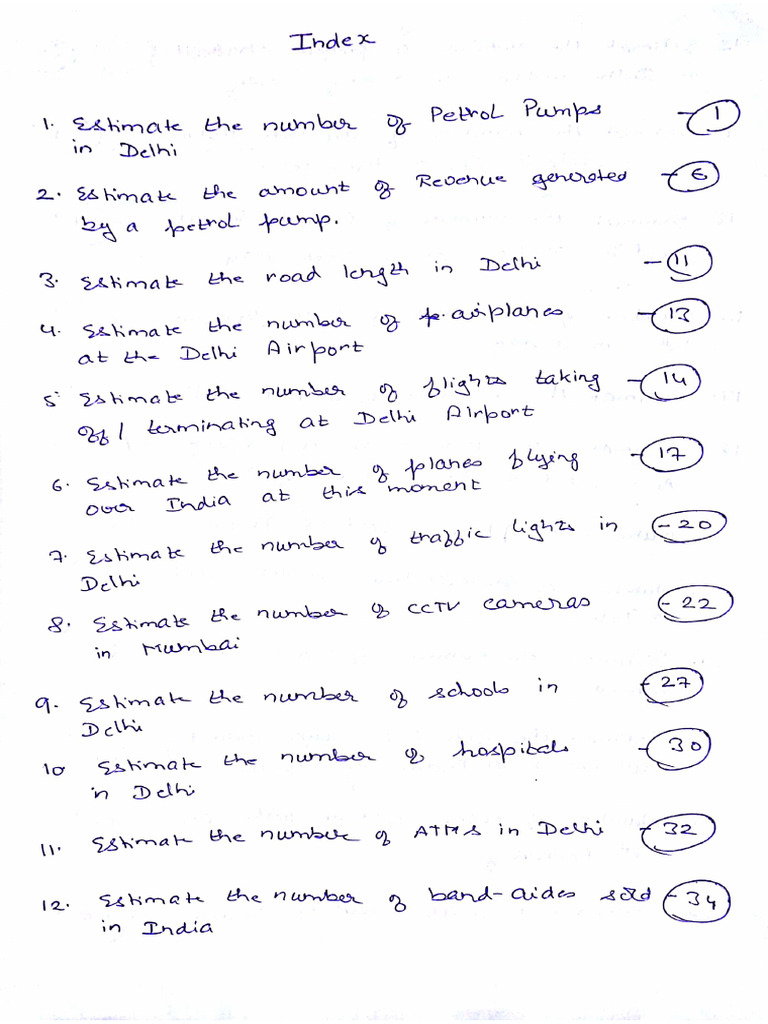 Index
1. Estimate the number of Petrol Pumps - 1
in Delhi
2. Estimate the amount of Revenue generated - 6
by a petrol pump.
3. Estimate the road length in Delhi - 11
4. Estimate the number of airplanes - 13
at the Delhi Airport
5. Estimate the number of flights taking - 14
off / terminating at Delhi Airport
6. Estimate the number of planes flying - 17
over India at this moment
7. Estimate the number of traffic lights in - 20
Delhi
8. Estimate the number of CCTV cameras - 22
in Mumbai
9. Estimate the number of schools in - 27
Delhi
10 Estimate the number of hospitals - 30
in Delhi
11. Estimate the number of ATMs in Delhi - 32
12. Estimate the number of band-aides sold - 34
in India